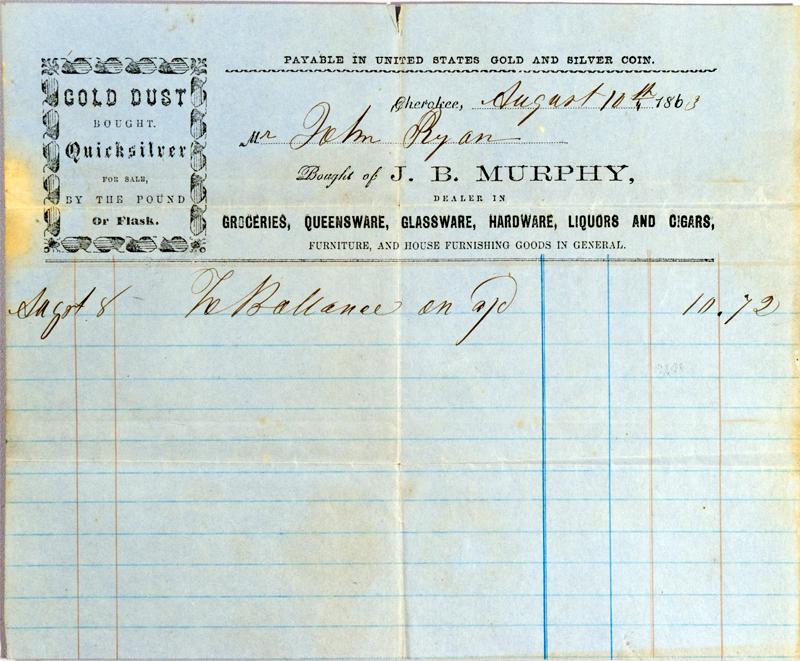 PAYABLE IN UNITED STATES GOLD AND SILVER COIN.
GOLD DUST
BOUGHT.
Quicksilver
FOR SALE,
BY THE POUND
Or Flask.
Cherokee, August 10th 1863
Mr John Ryan
Bought of J. B. MURPHY,
DEALER IN
GROCERIES, QUEENSWARE, GLASSWARE, HARDWARE, LIQUORS AND CIGARS,
FURNITURE, AND HOUSE FURNISHING GOODS IN GENERAL.
Augst 8 To Ballance on 10.72